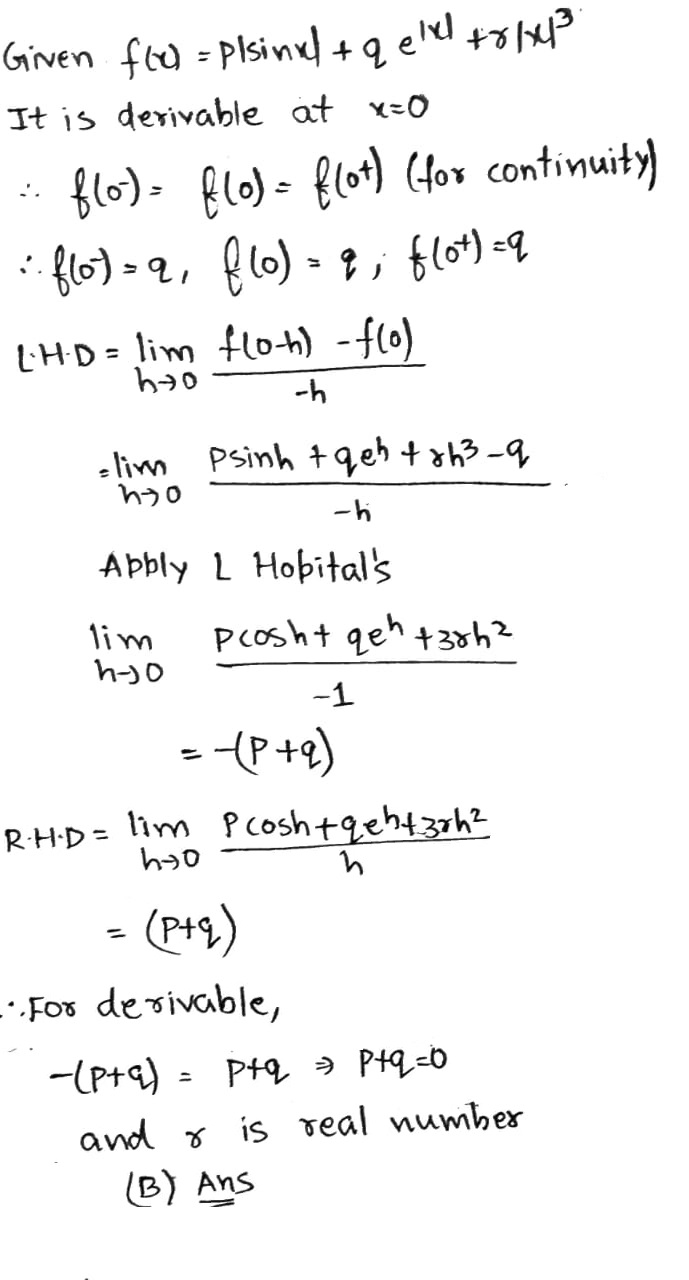 Given f(x) = p|sinx| + q e^|x| + r|x|^3
It is derivable at x=0
∴ f(0-) = f(0) = f(0+) (for continuity)
∴ f(0-) = q, f(0) = q, f(0+) = q
L.H.D = lim h→0 f(0-h) - f(0) / -h
= lim h→0 psinh + qe^h + rh^3 - q / -h
Apply L Hopital's
lim h→0 pcosh + qe^h + 3rh^2 / -1
= -(p+q)
R.H.D = lim h→0 pcosh + qe^h + 3rh^2 / h
= (p+q)
∴ For derivable,
-(p+q) = p+q ⇒ p+q=0
and r is real number
(B) Ans